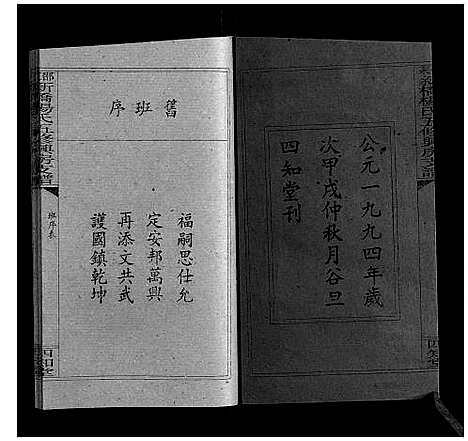 公元一九九四年歲
次甲戌仲秋月谷旦
四知堂刊
舊班序
福嗣思仕允
定安邦萬興
再添文共武
護國鎮乾坤
班序表
四知堂